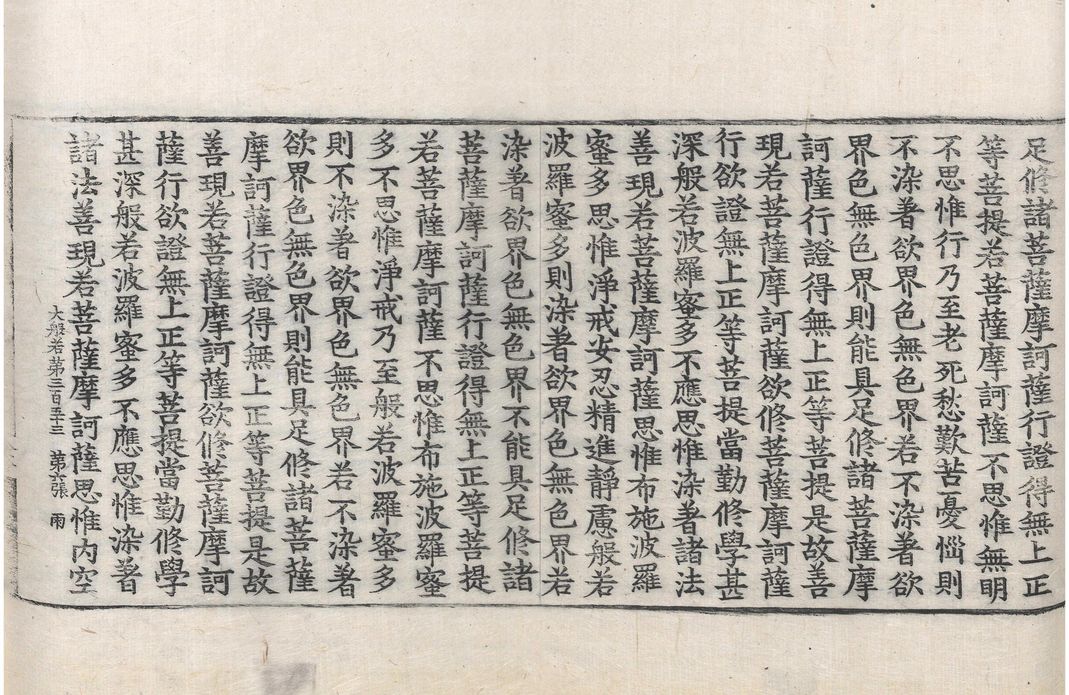 足修諸菩薩摩訶薩行證得無上正
等菩提若菩薩摩訶薩不思惟無明
不思惟行乃至老死愁歎苦憂惱則
不染著欲界色無色界若不染著欲
界色無色界則能具足修諸菩薩摩
訶薩行證得無上正等菩提是故善
現若菩薩摩訶薩欲修菩薩摩訶薩
行欲證無上正等菩提當勤修學甚
深般若波羅蜜多不應思惟染著諸法
善現若菩薩摩訶薩思惟布施波羅
蜜多思惟淨戒安忍精進靜慮般若
波羅蜜多則染著欲界色無色界若
染著欲界色無色界不能具足修諸
菩薩摩訶薩行證得無上正等菩提
若菩薩摩訶薩不思惟布施波羅蜜
多不思惟淨戒乃至般若波羅蜜多
則不染著欲界色無色界若不染著
欲界色無色界則能具足修諸菩薩
摩訶薩行證得無上正等菩提是故
善現若菩薩摩訶薩欲修菩薩摩訶
薩行欲證無上正等菩提當勤修學
甚深般若波羅蜜多不應思惟染著
諸法善現若菩薩摩訶薩思惟內空
大般若第三百五十三 第六張 雨